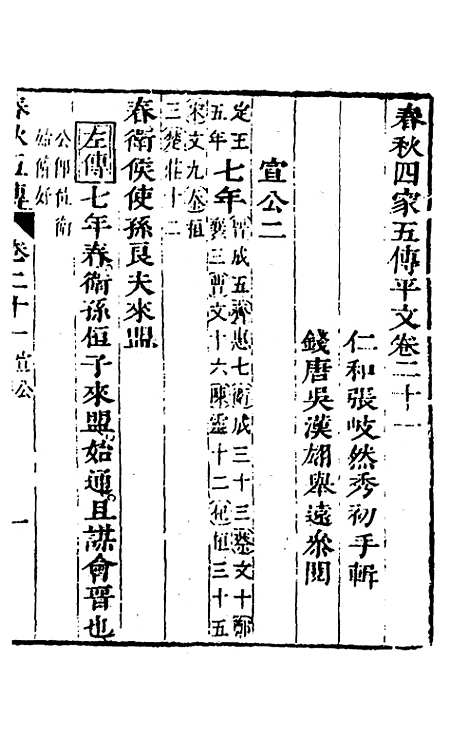 春秋四家五傳平文卷二十一
仁和張岐然秀初手輯
錢唐吳漢翊舉遠參閱
宣公二
定王五年七年晉成五齊惠七衛成三十三蔡文十鄭襄三曹文十六陳靈十二杞桓三十五
宋文九秦桓三楚莊十二
春衛侯使孫良夫來盟
左傳七年春衛孫桓子來盟始通且謀會晉也
公即位衛始脩好
春秋五傳 卷二十一 宣公 一